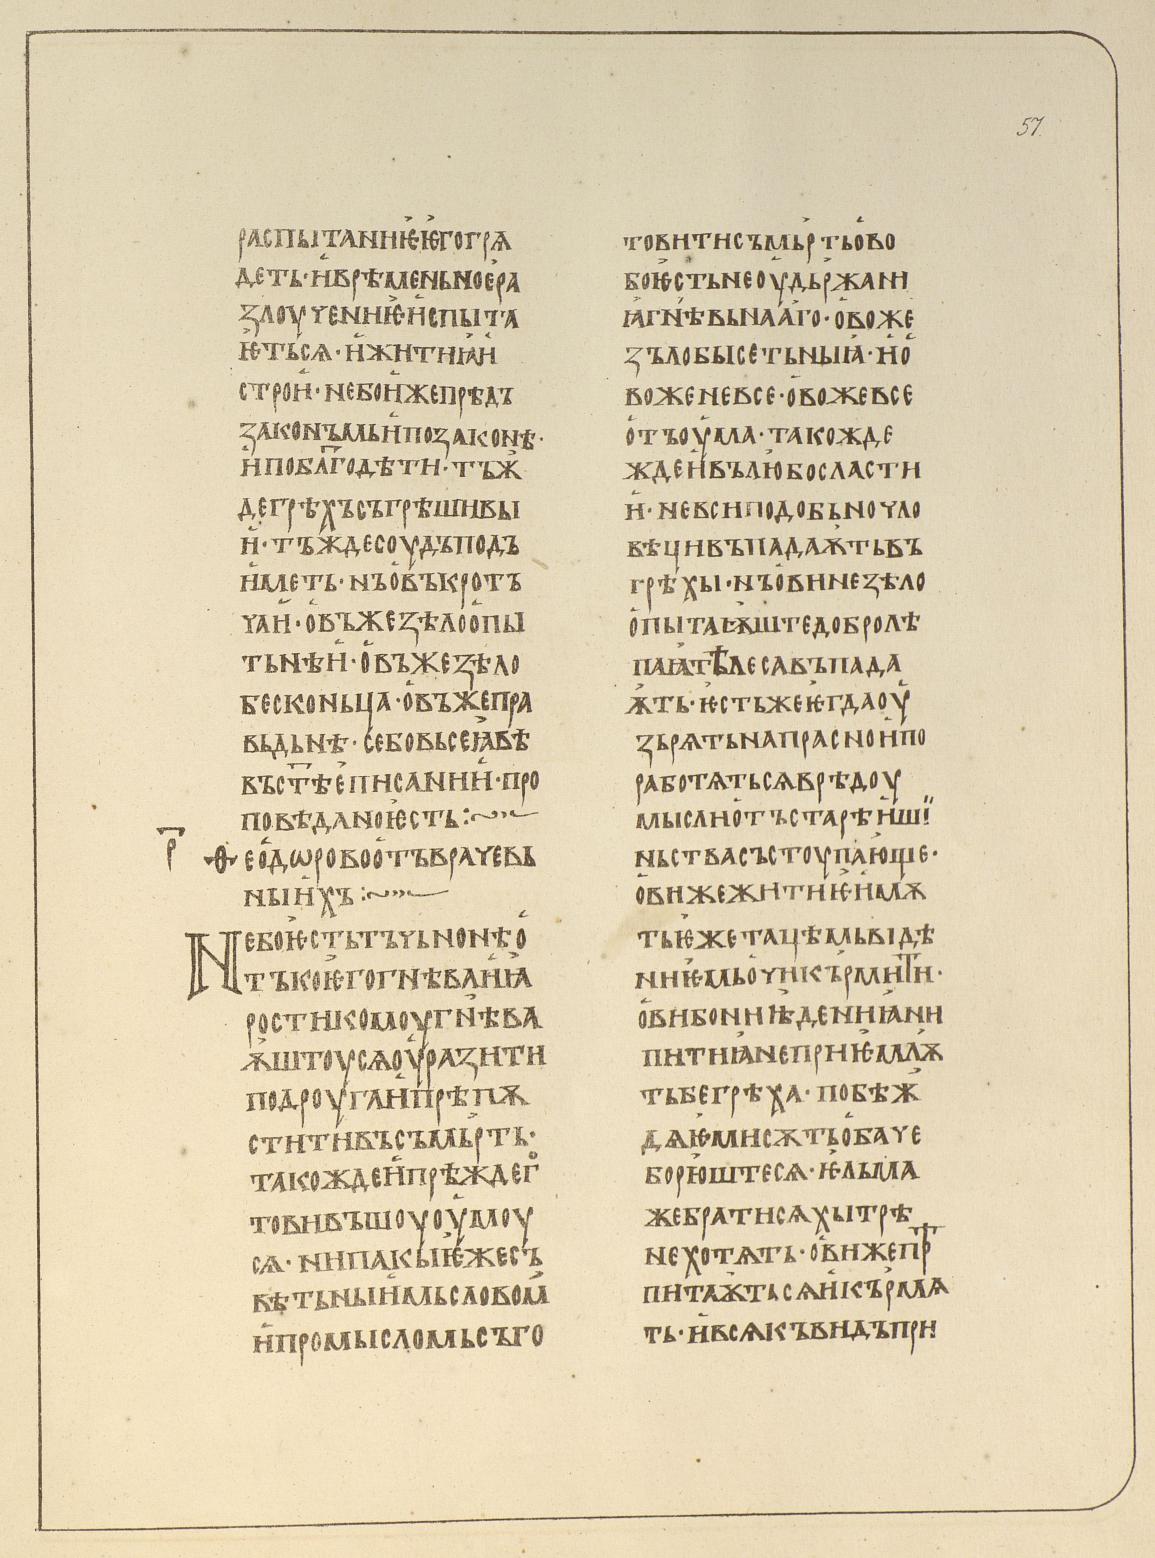 57
распытаниѥ ѥго грѧ
деть· и врѣменьное ра
злоучениѥ испыта
ѥтьсѧ· и житиꙗ и
строи· не бо иже прѣдъ
закономь и по законѣ·
и по блг҃одѣти· тъж
де грѣхъ съгрѣшивы
и· тъжде соудъ подъ
иметь· нъ овъ крот
чаи· овъ же зѣло опы
тьнѣи· овъ же зѣло
бес коньца· овъ же пра
вьдьнѣ· се бо вьсе ꙗвѣ
въ ст҃ѣемь писании· про
повѣдано ѥсть:~
р҃
Ѳеодѡрово отъ врачевь
ныихъ:~
Не бо ѥсть тъчьно нѣ о
тъ коѥго гнѣва и ꙗ
рости комоу гнѣва
ѭштоусѧ оуразити
подроуга и прѣпѫ
стити въ съмьрть·
такожде и прѣжде г
товивъшоуоумоу
сѧ· ни пакы ѥже съ
вѣтьныимь словомь
и промысломь съго
товити съмьрть ово
бо ѥсть не оудьржани
ꙗ гнѣвьнааго· ово же
зълобы сетьныꙗ· и о
во же не вьсе· ово же вьсе
отъ оума· такожде
жде и въ любосласти
и· не вси подобьно чло
вѣци въпадаѭть въ
грѣхы· нъ ови не зѣло
опытаѭште добролѣ
паꙗ тѣлеса въпада
ѭть· ѥсть же ѥгда оу
зьрѧть напрасно и по
работѧтьсѧ врѣдоу
мысльно отъ старѣиши
ньства състоупающе·
ови же житиѥ имѧ
ть ѥже тацѣмь видѣ
ниѥмь очи кърмити·
ови бо ни ꙗдениꙗ ни
питиꙗ не приѥмлѭ
ть бе грѣха· побѣж
даѥми сѫть обаче
борюштесѧ· ѥльма
же братисѧ хытрѣ
не хотѧть· ови же пр
питаѭтьсѧ и кърмѧ
ть· и всѧкъ видъ при